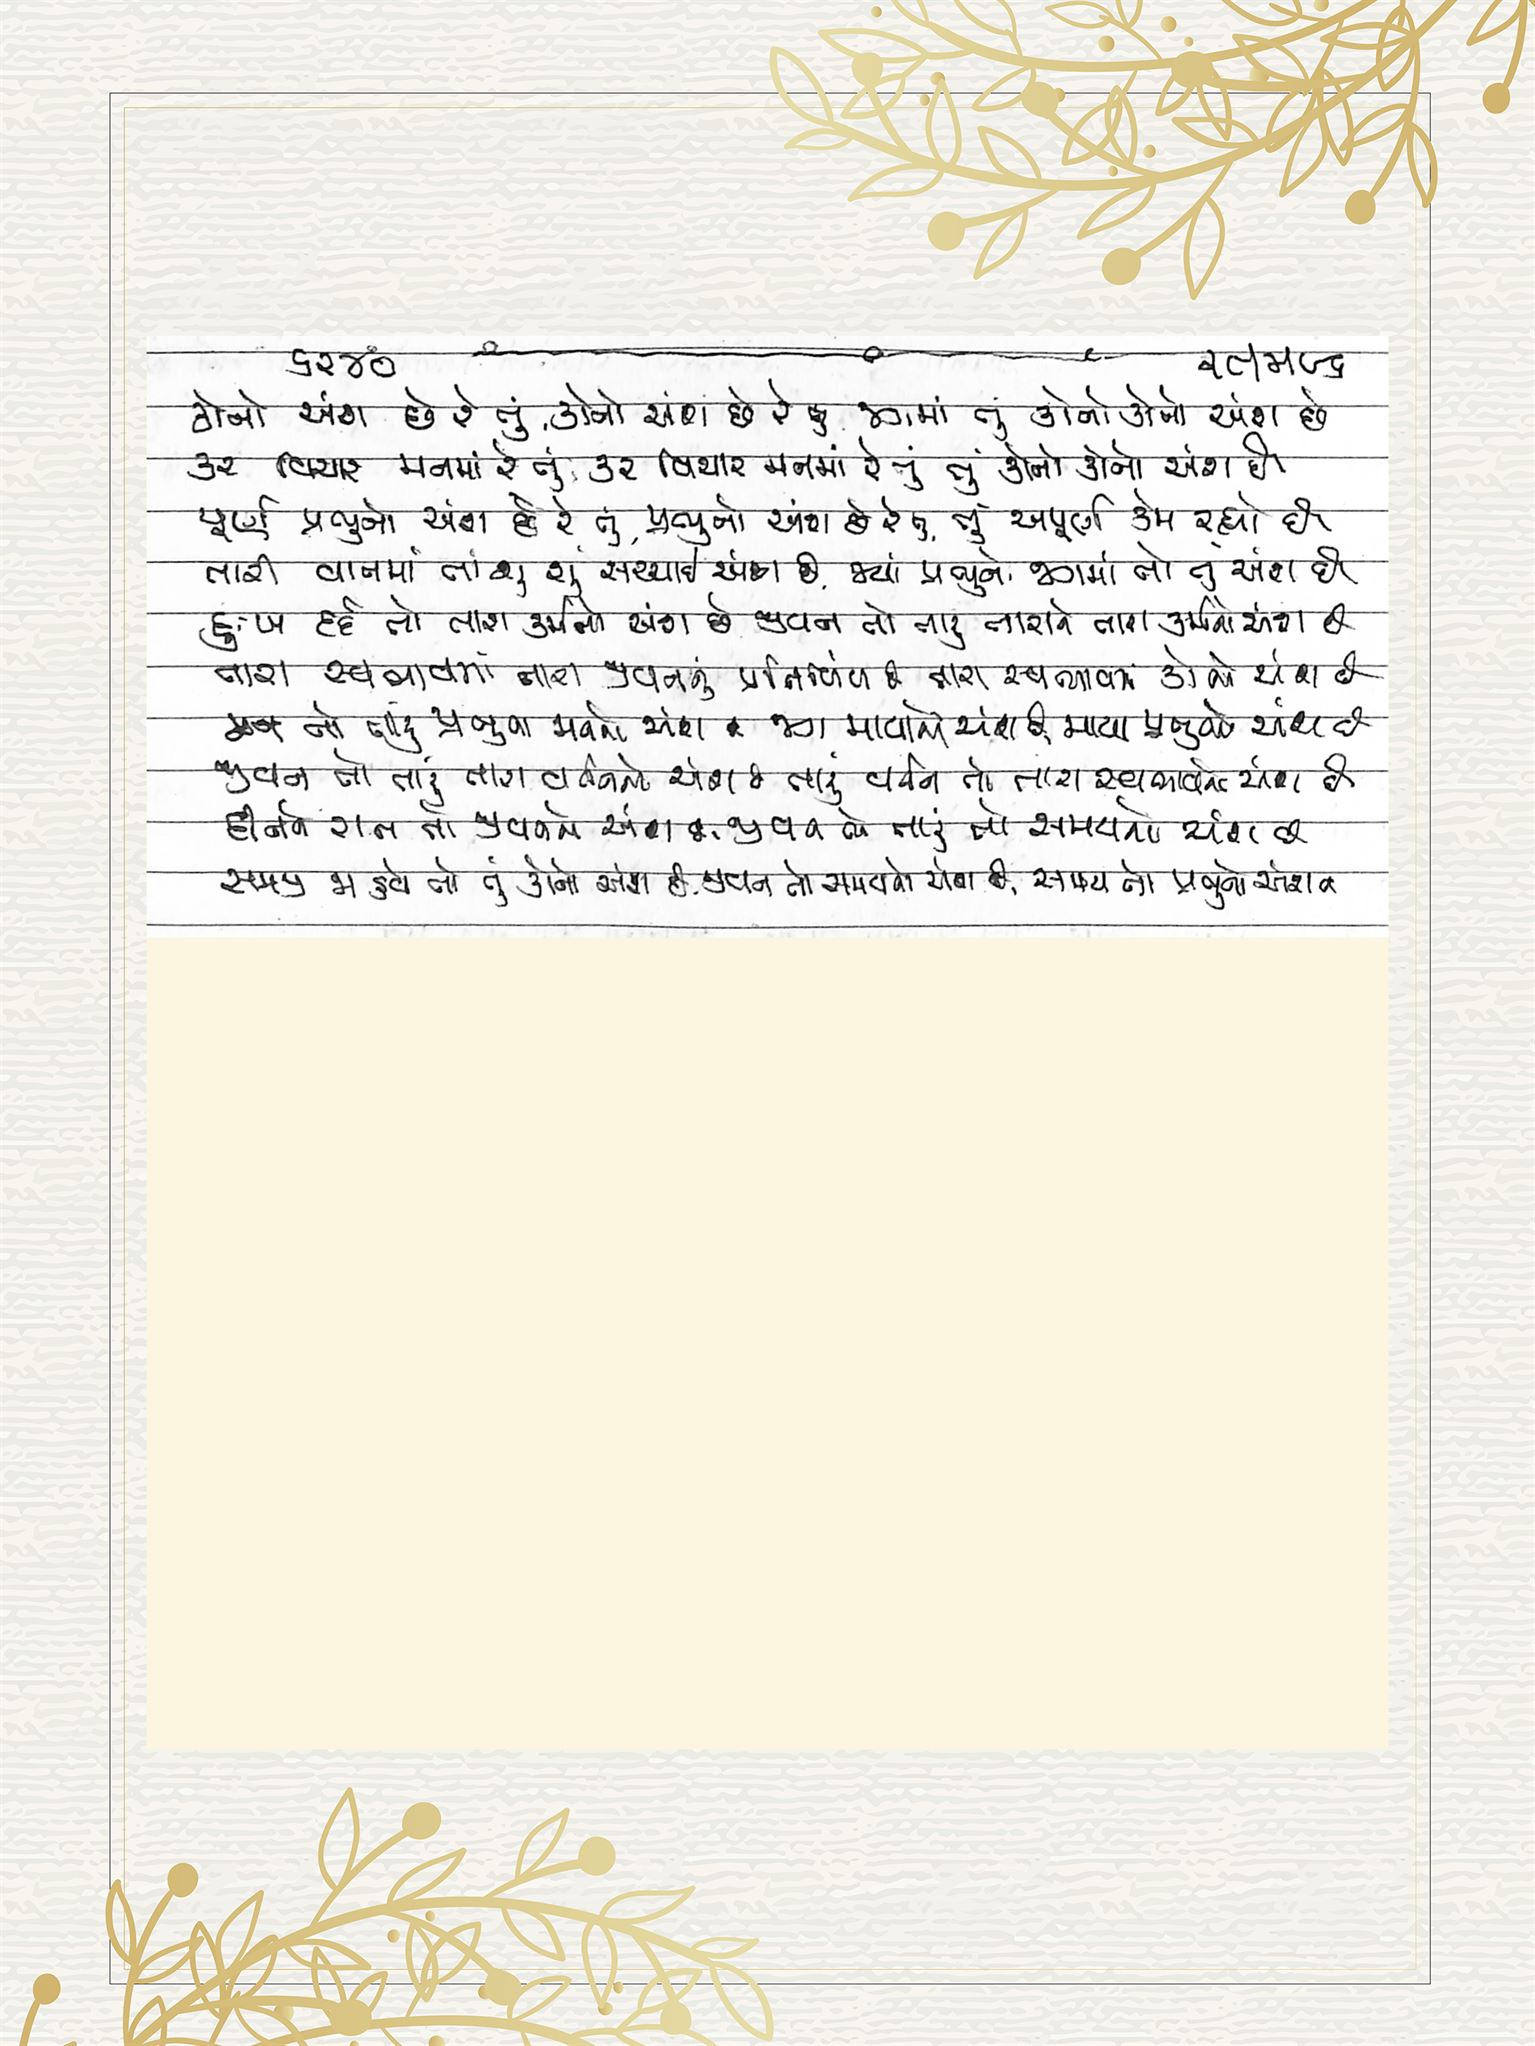 ૬૨૪૦
કોનો અંશ છે રે તું, કોનો અંશ છે રે તું, જગમાં તું કોનો કોનો અંશ છે
કર વિચાર મનમાં રે તું, કર વિચાર મનમાં રે તું, તું કોનો કોનો અંશ છે
પૂર્ણ પ્રભુનો અંશ છે રે તું, પ્રભુનો અંશ છે રે તું, તું અપૂર્ણ કેમ રહ્યો છે
તારી વાતમાં તો શું શું સચ્ચાઈ અંશ છે, જ્યાં પ્રભુનો જગમાં તો તું અંશ છે
દુઃખ દર્દ તો તારા કર્મનો અંશ છે જીવન તો તારું તારાને તારા કર્મનો અંશ છે
તારા સ્વભાવમાં તારા જીવનનું પ્રતિબિંબ છે તારા સ્વભાવમાં કોનો અંશ છે
મન તો તારું પ્રભુના મનનો અંશ છે જગ માયાનો અંશ છે, માયા પ્રભુનો અંશ છે
જીવન તો તારું તારા વર્તનનો અંશ છે તારું વર્તન તો તારા સ્વભાવનો અંશ છે
દિન રાત તો જીવનનો અંશ છે, જીવન તો તારું તો સમયનો અંશ છે
તો તું કોનો અંશ છે, જીવન તો સમયનો અંશ છે, સમય તો પ્રભુનો અંશ છે